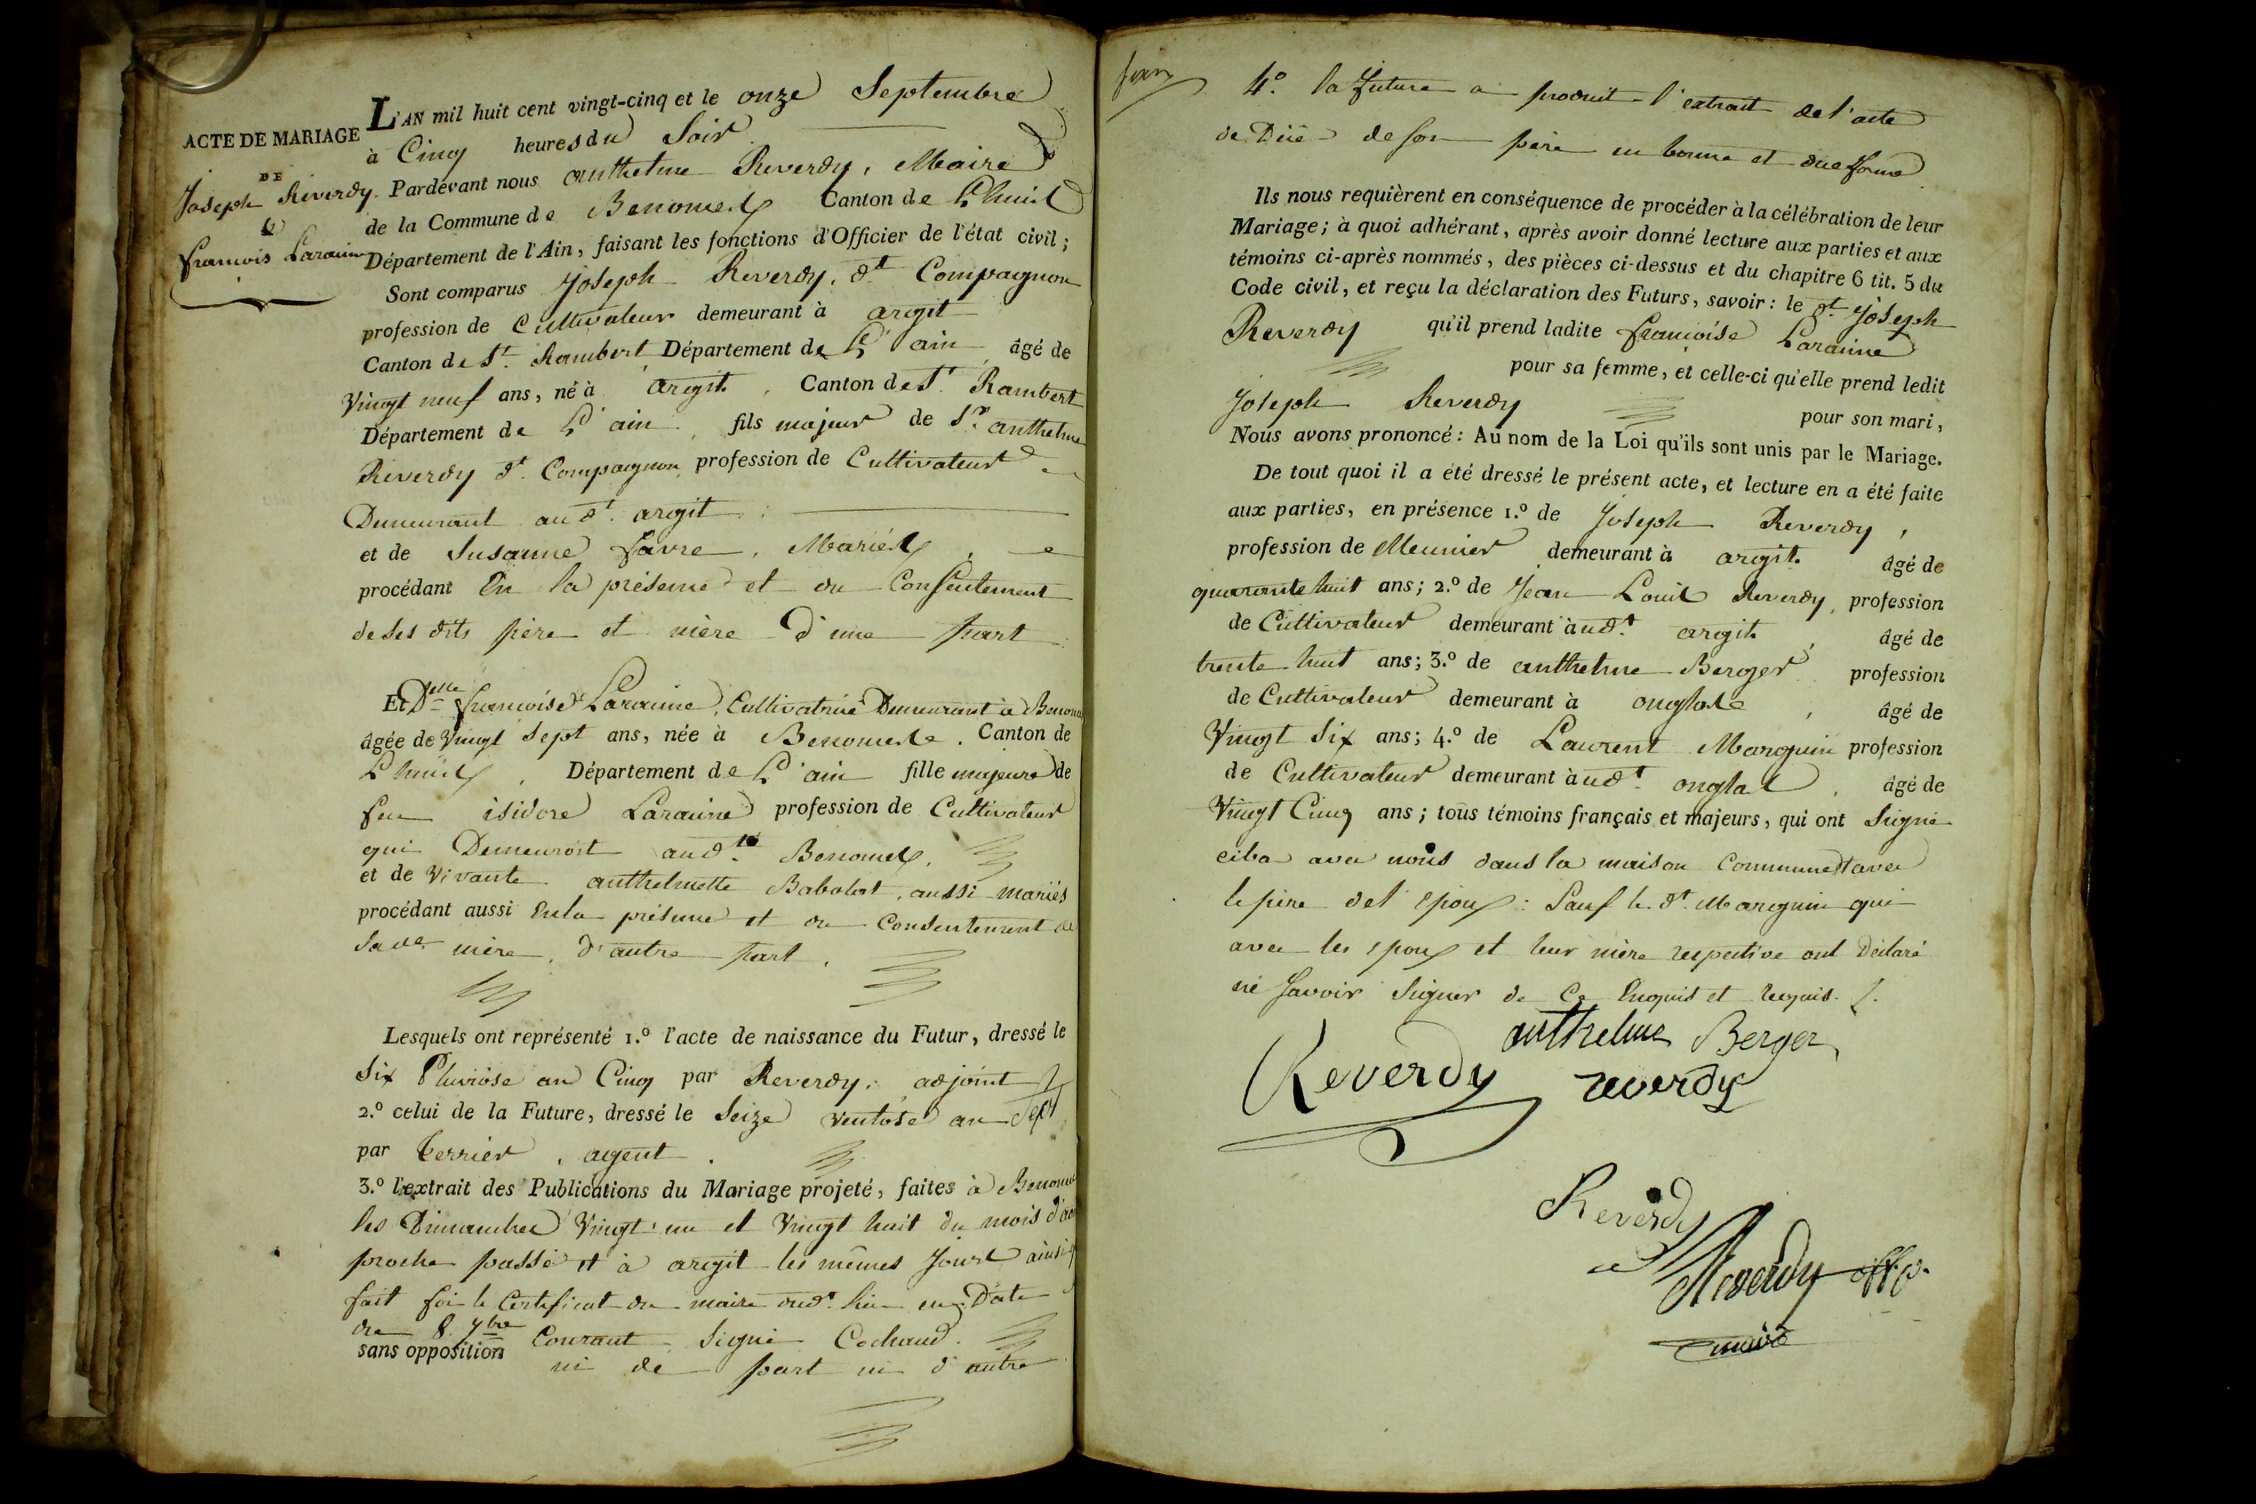 ACTE DE MARIAGE
DE
Joseph Reverdy
&
francois Laraime
L'AN mil huit cent vingt-cinq et le onze Septembre
à Cinq heures du Soir
Pardevant nous anthelme Reverdy, Maire
de la Commune de Benonces Canton de Lhuis
Département de l'Ain, faisant les fonctions d'Officier de l'état civil;
Sont comparus Joseph Reverdy, dt Compagnon
profession de Cultivateur demeurant à argit
Canton de St. Rambert Département de L'ain, âgé de
Vingt neuf ans, né à argit, Canton de St. Rambert
Département de L'ain, fils majeur de Sr. anthelme
Reverdy dt. Compagnon, profession de Cultivateur
Demeurant aud.t argit
et de Susanne favre, Mariés,
procédant En la présence et du Consentement
de ses dits père et mère d'une part
Et Delle francoise Laraime, Cultivatrice Demeurant à
âgée de Vingt Sept ans, née à Benonces. Canton de
Lhuis, Département de L'ain fille majeure de
feu isidore Laraime profession de Cultivateur
qui Demeuroit aud.t Benonces.
et de Vivante anthelmette Babolat, aussi mariés
procédant aussi En la présence et du Consentement de
sa de mère, d'autre part.
Lesquels ont représenté 1.º l'acte de naissance du Futur, dressé le
Six Pluviose an Cinq par Reverdy, adjoint
2.º celui de la Future, dressé le Seize ventose an Sept
par terrier, agent.
3.º l'extrait des Publications du Mariage projeté, faites à
les Dimanches Vingt un et Vingt huit du mois
proche passé et à argit les mêmes Jours
fait foi le Certificat du maire dud.t lieu en Date
du 8 7bre Courant Signé Cochaud.
sans opposition ni de part ni d'autre
4.º la future a produit l'extrait de l'acte
de Décè de son père en bonne et due forme
Ils nous requièrent en conséquence de procéder à la célébration de leur
Mariage; à quoi adhérant, après avoir donné lecture aux parties et aux
témoins ci-après nommés, des pièces ci-dessus et du chapitre 6 tit. 5 du
Code civil, et reçu la déclaration des Futurs, savoir: le dt Joseph
Reverdy qu'il prend ladite francoise Laraime
pour sa femme, et celle-ci qu'elle prend ledit
Joseph Reverdy pour son mari,
Nous avons prononcé: Au nom de la Loi qu'ils sont unis par le Mariage.
De tout quoi il a été dressé le présent acte, et lecture en a été faite
aux parties, en présence 1.º de Joseph Reverdy,
profession de Meunier demeurant à argit. âgé de
quarante huit ans; 2.º de Jean Louis Reverdy, profession
de Cultivateur demeurant à ud.t argit, âgé de
trente huit ans; 3.º de anthelme Berger profession
de Cultivateur demeurant à onglas, âgé de
Vingt Six ans; 4.º de Laurent Marquin profession
de Cultivateur demeurant à ud.t onglas. âgé de
Vingt Cinq ans; tous témoins français et majeurs, qui ont Signé
avec nous dans la maison Commune et avec
le père de l'époux: Sauf le dt. Marquin qui
avec les époux et leur mère respective ont Déclaré
ne savoir Signer de Ce Enquis et requis.
anthelme Berger
Reverdy reverdy
Reverdy
Reverdy
maire